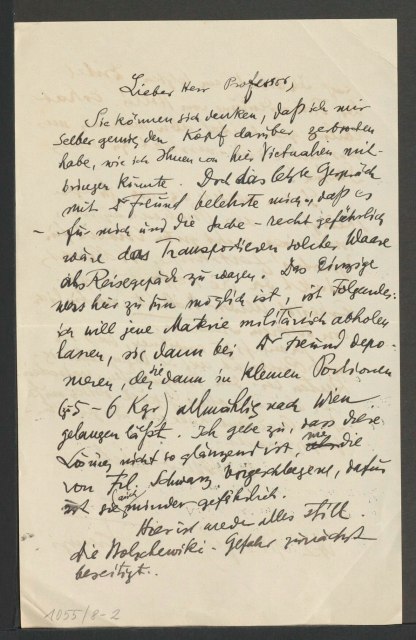 Lieber Herr Professor,
Sie können sich denken, daß ich mir
selber genug den Kopf darüber zerbrochen
habe, wie ich Ihnen von hier Victualien mit-
bringen könnte. Doch das letzte Gespräch
mit Dr Freund belehrte mich, daß es
für mich und die Sache - recht gefährlich
wäre das Transportieren solcher Waare
als Reisegepäck zu wagen. Das Einzige
was hier zu tun möglich ist, ist Folgendes:
ich will jene Materie militärisch abholen
lassen, sie dann bei Dr Freund depo-
nieren, der sie dann in kleinen Portionen
(à 5 - 6 Kgr) allmählig nach Wien
gelangen läßt. Ich gebe zu, dass diese
Lösung nicht so glänzend ist, wie die
von Frl. Schwarz vorgeschlagene, dafür
ist sie auch minder gefährlich.
Hier ist wieder alles still.
die Bolschewiki-Gefahr zunächst
beseitigt.
1055/8-2